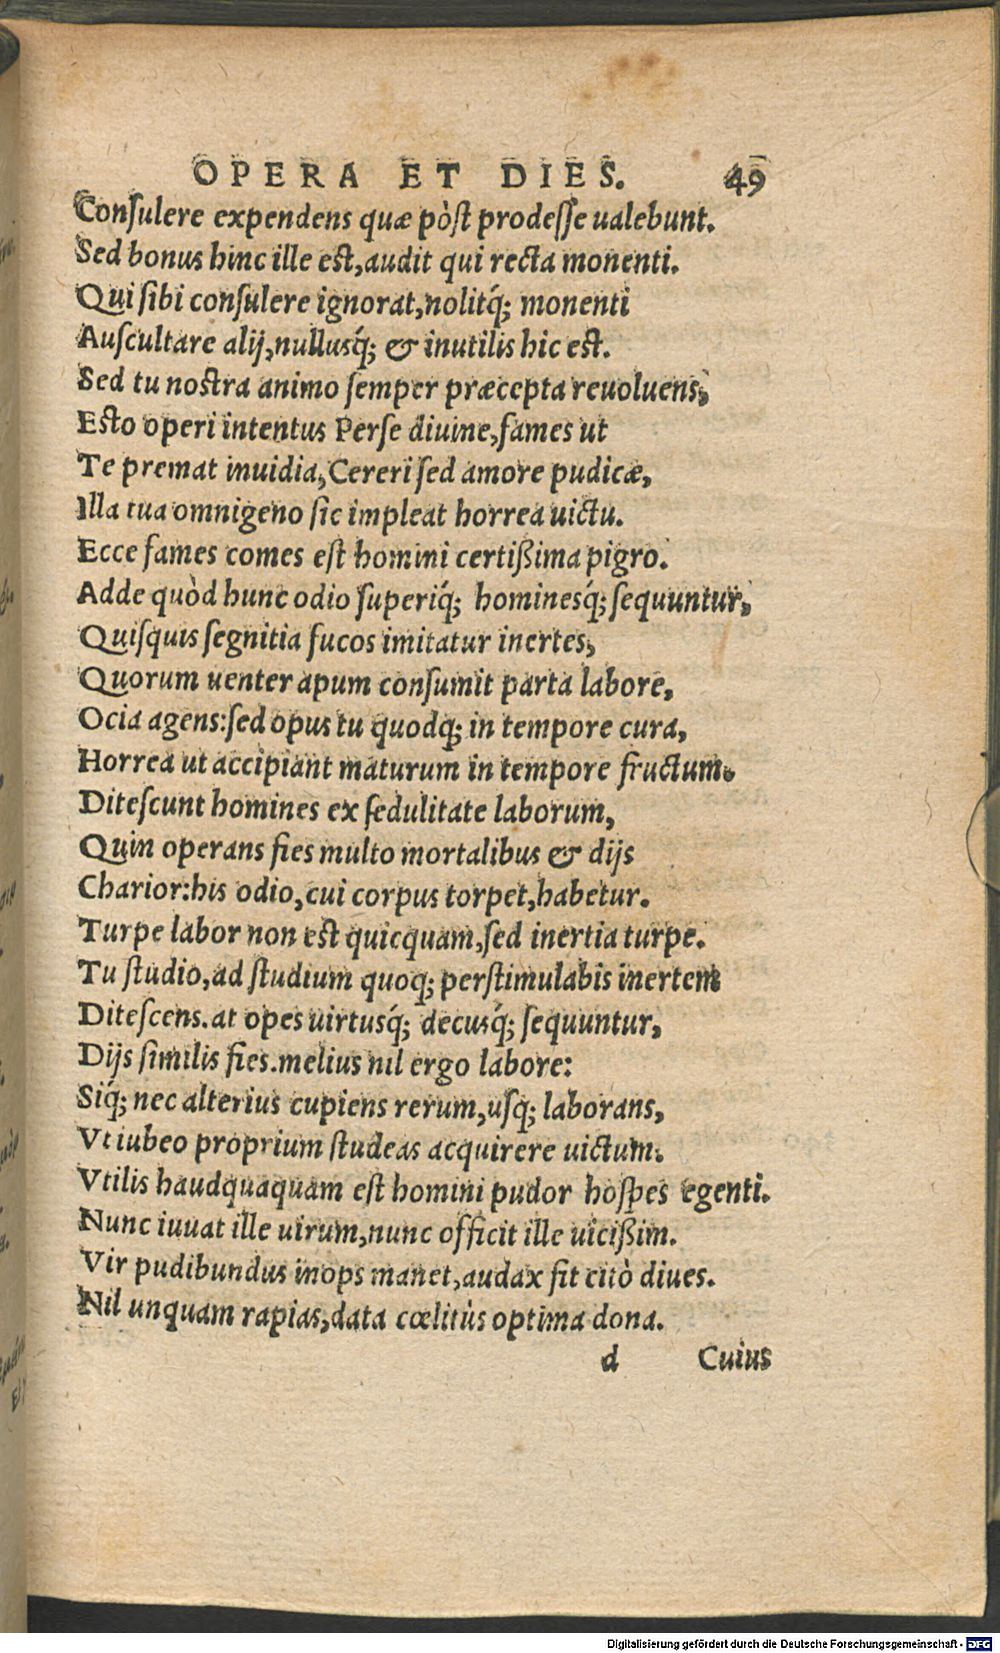 OPERA ET DIES. 49
Conſulere expendens quæ pòſt prodeſſe ualebunt.
Sed bonus hinc ille eſt, audit qui recta monenti.
Qui ſibi conſulere ignorat, nolitq́; monenti
Auſcultare alij, nullusq́; & inutilis hic eſt.
Sed tu noſtra animo ſemper præcepta reuoluens,
Eſto operi intentus Perſe diuine, fames ut
Te premat inuidia, Cereri ſed amore pudicæ,
Illa tua omnigeno ſic impleat horrea uictu.
Ecce fames comes eſt homini certißima pigro.
Adde quòd hunc odio ſuperiq́; hominesq́; ſequuntur,
Quiſquis ſegnitia fucos imitatur inertes,
Quorum uenter apum conſumit parta labore,
Ocia agens: ſed opus tu quodq; in tempore cura,
Horrea ut accipiant maturum in tempore fructum.
Diteſcunt homines ex ſedulitate laborum,
Quin operans fies multo mortalibus & dijs
Charior: his odio, cui corpus torpet, habetur.
Turpe labor non eſt quicquam, ſed inertia turpe.
Tu ſtudio, ad ſtudium quoq; perſtimulabis inertem
Diteſcens. at opes uirtusq́; decusq́; ſequuntur,
Dijs ſimilis fies. melius nil ergo labore:
Siq́; nec alterius cupiens rerum, uſq; laborans,
Vt iubeo proprium ſtudeas acquirere uictum.
Vtilis haudquaquam eſt homini pudor hoſpes egenti.
Nunc iuuat ille uirum, nunc officit ille uicißim.
Vir pudibundus inops manet, audax fit citò diues.
Nil unquam rapias, data cœlitùs optima dona.
d Cuius
Digitalisierung gefördert durch die Deutsche Forschungsgemeinschaft - DFG